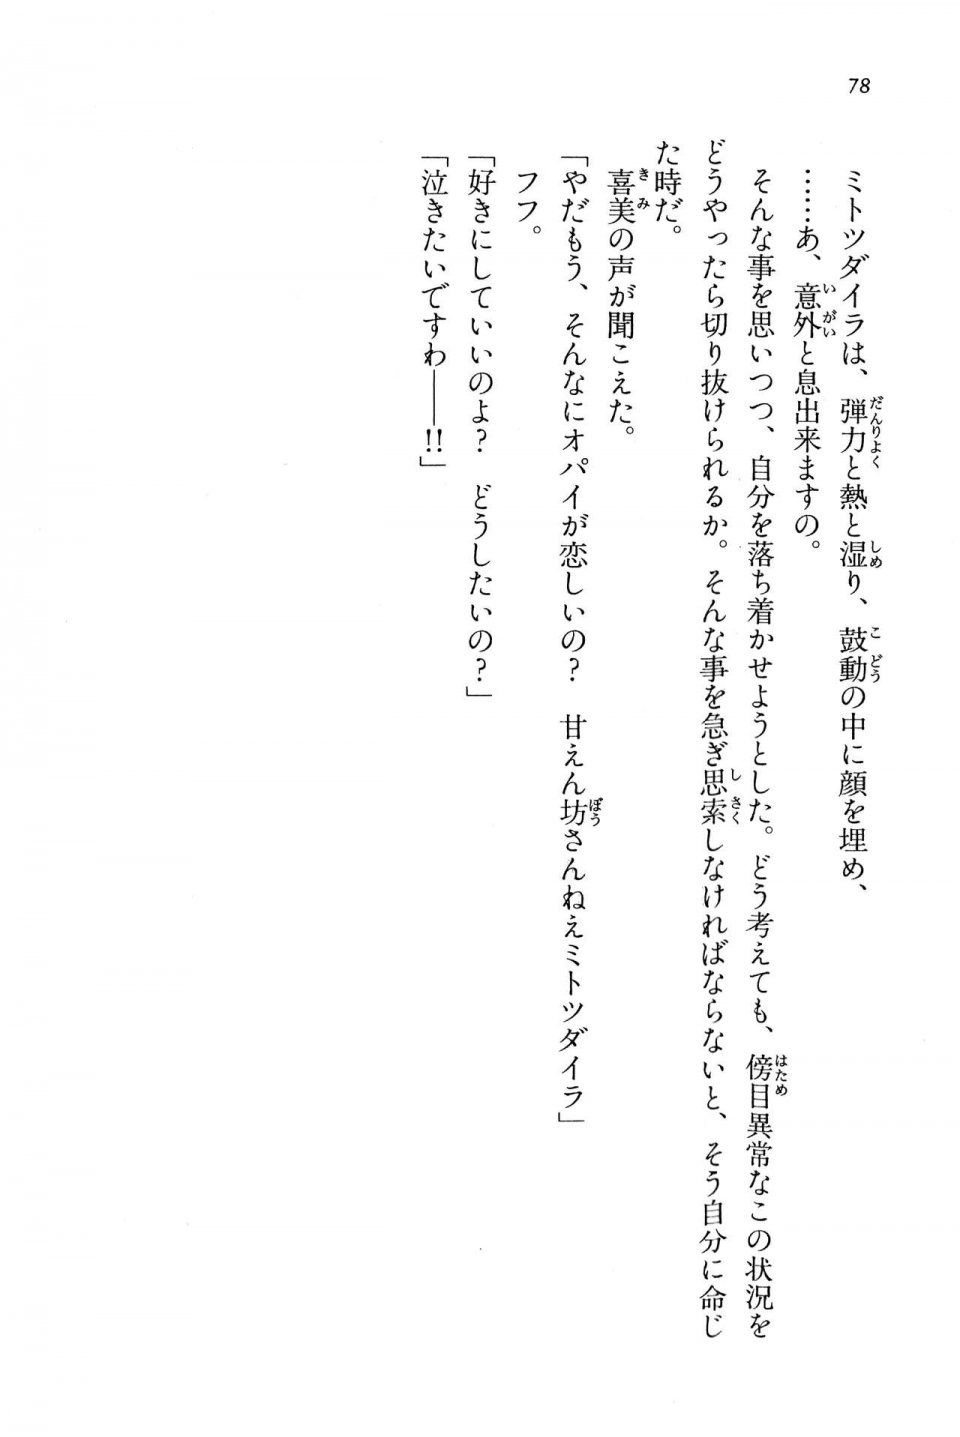 78
ミトツダイラは、弾力と熱と湿り、鼓動の中に顔を埋め、
……あ、意外と息出来ますの。
そんな事を思いつつ、自分を落ち着かせようとした。どう考えても、傍目異常なこの状況を
どうやったら切り抜けられるか。そんな事を急ぎ思索しなければならないと、そう自分に命じ
た時だ。
喜美の声が聞こえた。
「やだもう、そんなにオパイが恋しいの？　甘えん坊さんねえミトツダイラ」
フフ。
「好きにしていいのよ？　どうしたいの？」
「泣きたいですわ――!!」